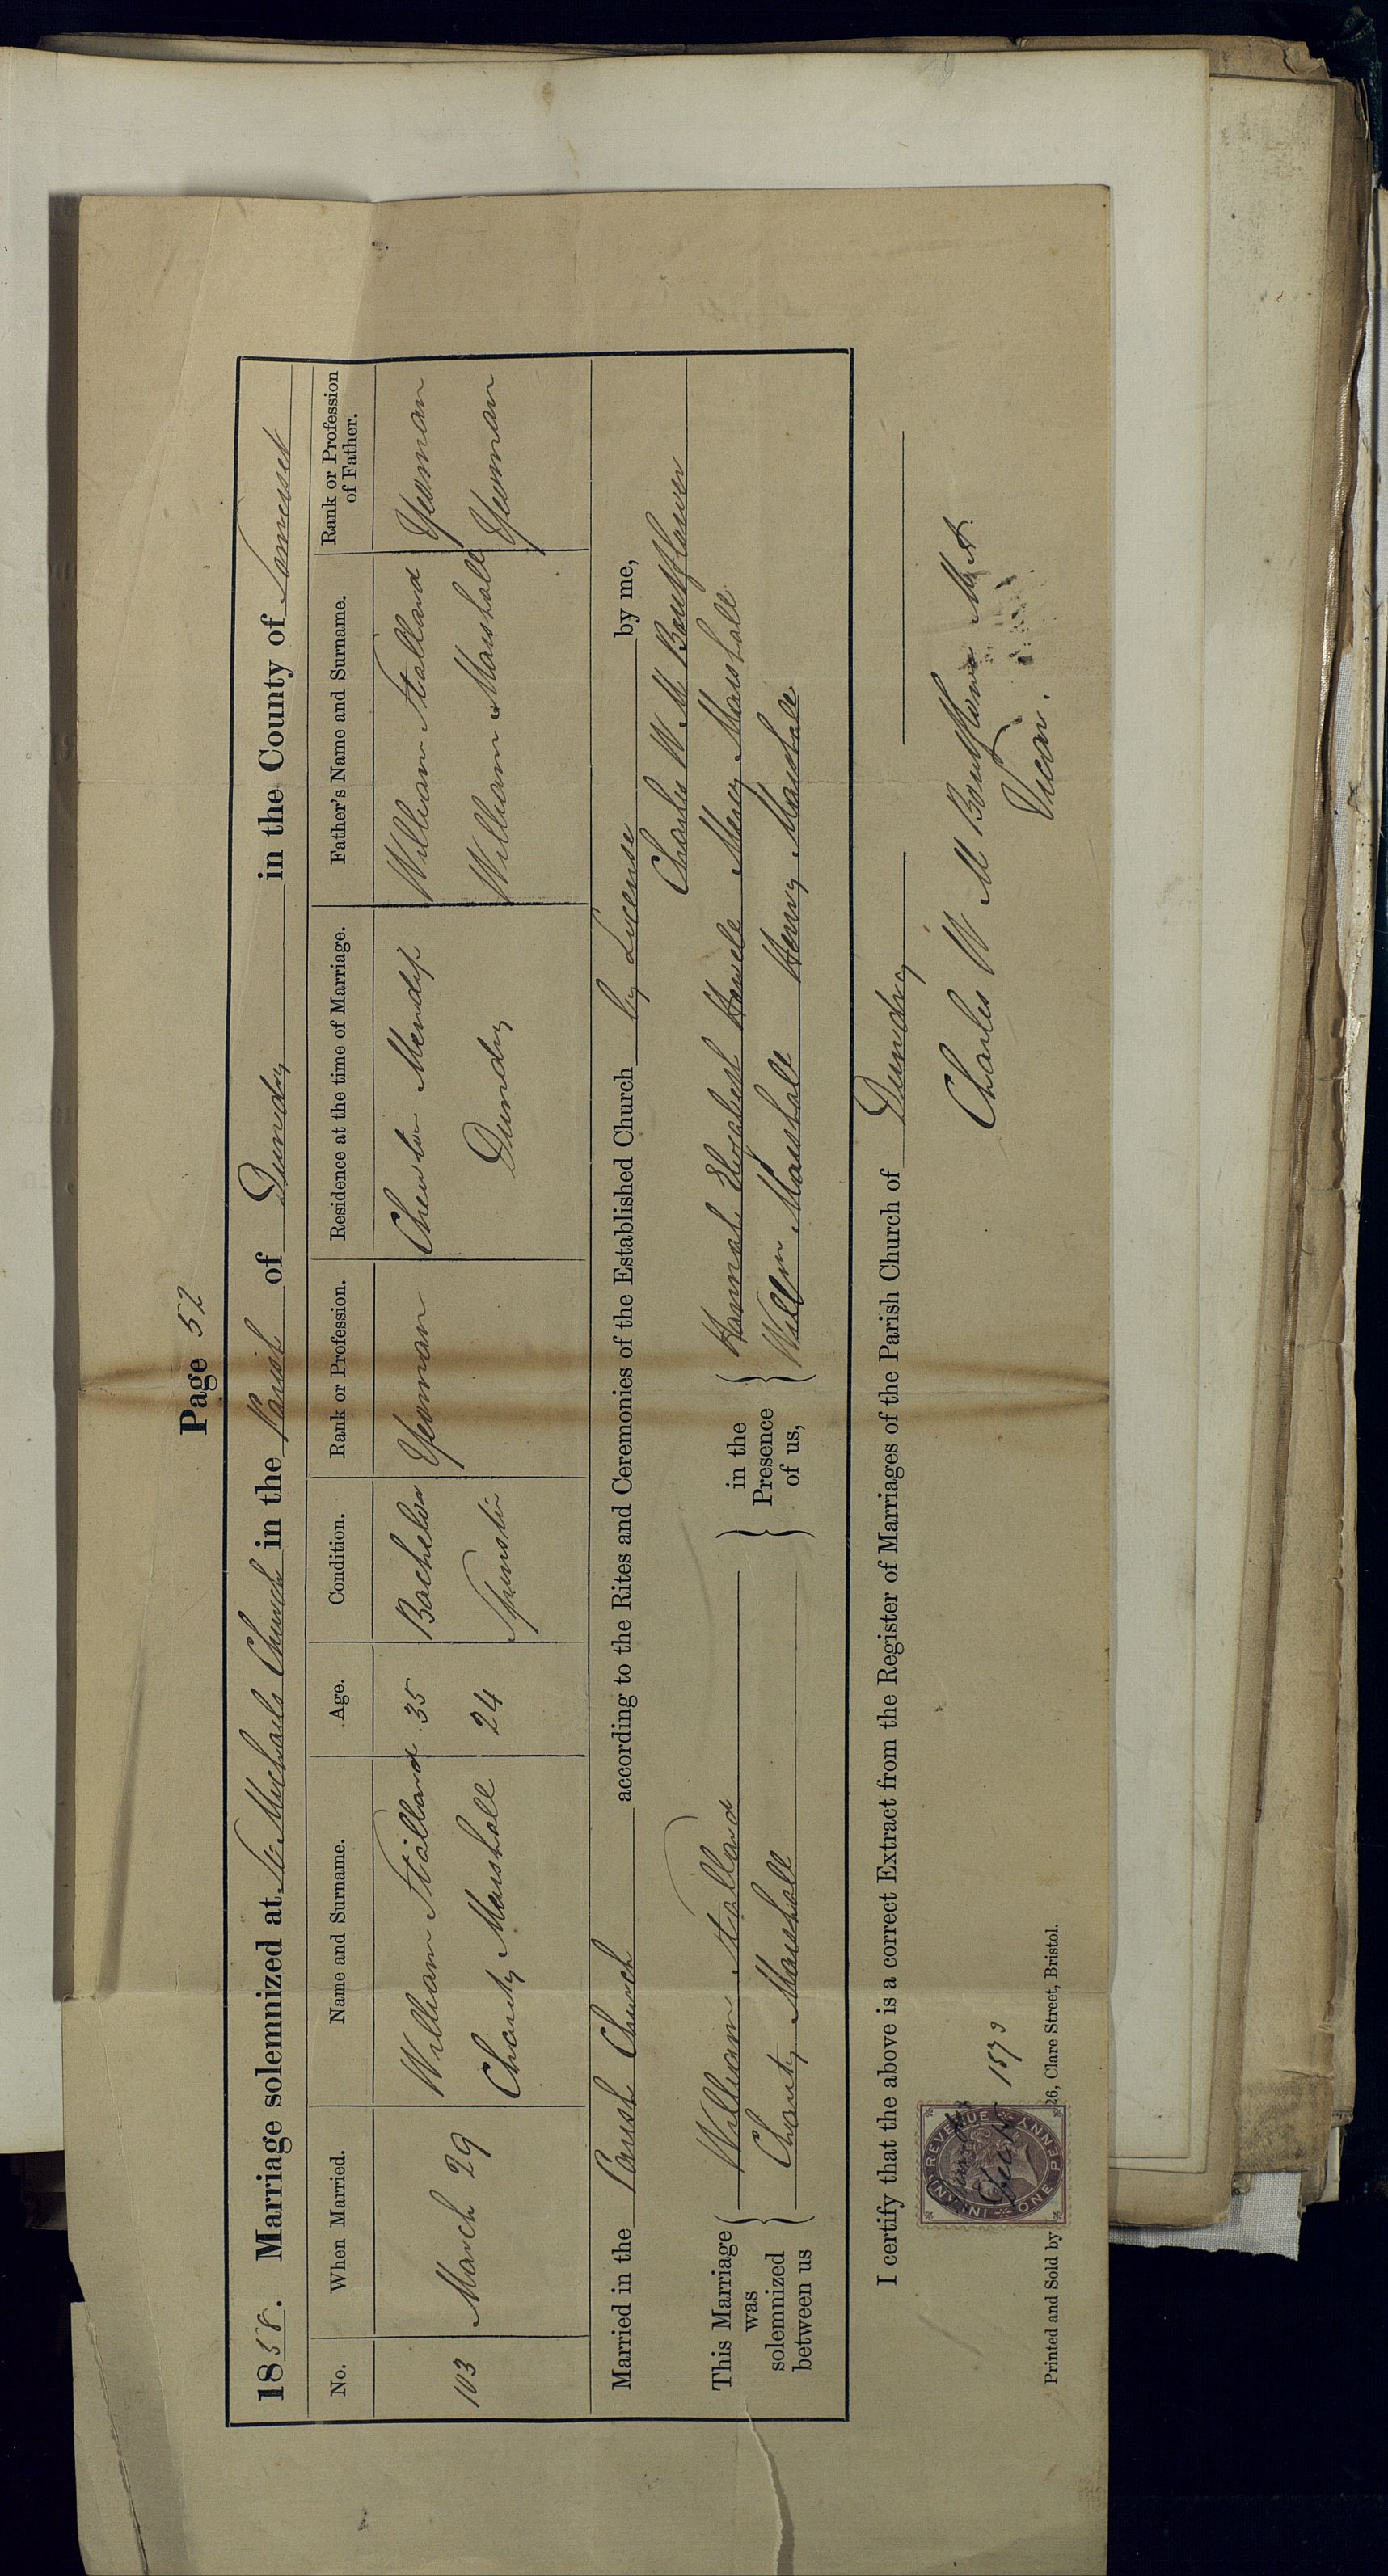 Page 52
1858. Marriage solemnized at St. Michaels Church in the Parish of Dundry in the County of Somerset
No. When Married. Name and Surname. Age. Condition. Rank or Profession. Residence at the time of Marriage. Father's Name and Surname. Rank or Profession of Father.
103 March 29 William Stallard 35 Bachelor Yeoman Chewton Mendip William Stallard Yeoman
Charity Marshall 24 Spinster Dundry William Marshall Yeoman
Married in the Parish Church according to the Rites and Ceremonies of the Established Church by License by me,
Charles W M Boutflower
This Marriage was solemnized between us William Stallard in the Presence of us, Hannah Elizabeth Mercy Marshall
Charity Marshall Willm Marshall Henry Marshall
I certify that the above is a correct Extract from the Register of Marriages of the Parish Church of Dundry
Charles W M Boutflower M.A.
Vicar.
INLAND REVENUE
ONE PENNY
Printed and Sold by 26, Clare Street, Bristol.